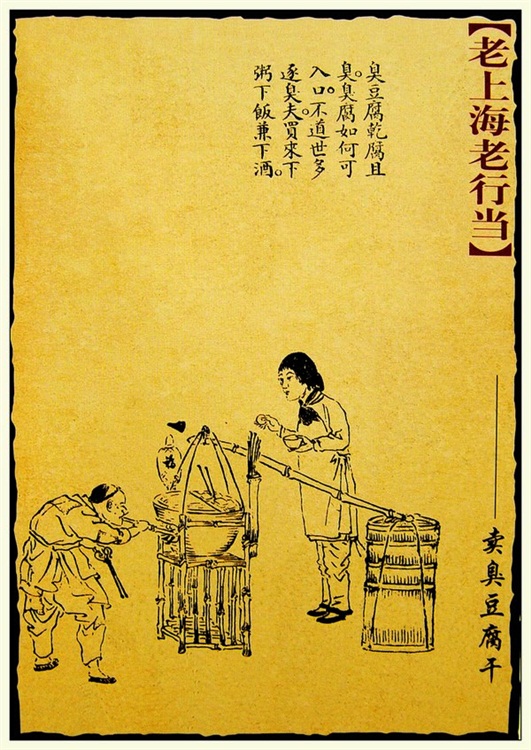 【老上海老行当】
臭豆腐乾腐且
臭。臭腐如何可
入口。不道世多
逐臭夫。買來下
粥下飯兼下酒。
卖臭豆腐干